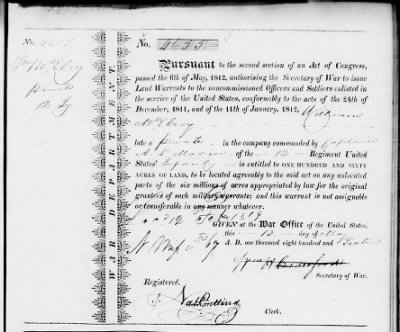 No. 4655
No. 4655.
Wm McElroy
private
WAR DEPARTMENT.
PURSUANT to the second section of an Act of Congress,
passed the 6th of May, 1812, authorising the Secretary of War to issue
Land Warrants to the noncommissioned Officers and Soldiers enlisted in
the service of the United States, conformably to the acts of the 24th of
December, 1811, and of the 11th of January, 1812, William
McElroy
late a private in the company commanded by Captain
of the 12 Regiment United
States' Infantry is entitled to ONE HUNDRED AND SIXTY
ACRES OF LAND, to be located agreeably to the said act on any unlocated
parts of the six millions of acres appropriated by law for the original
grantees of such military warrants; and this warrant is not assignable
or transferable in any manner whatever.
GIVEN at the War Office of the
United States, this 13 day of May
A. D. one thousand eight hundred and
Secretary of War.
Registered.
Clerk.